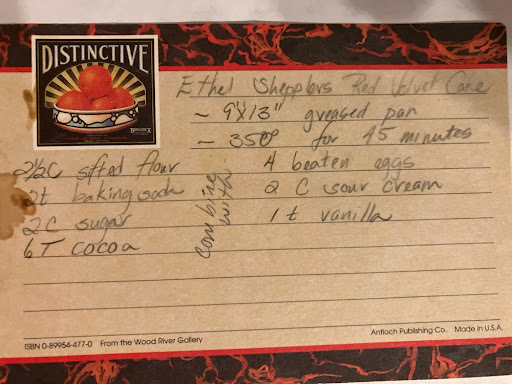 DISTINCTIVE
Ethel Shepplers Red Velvet Cake
~ 9"X13" greased pan
~ 350° for 45 minutes
2½C sifted flour
2t baking soda
2C sugar
6T cocoa
combine with
4 beaten eggs
2 C sour cream
1 t vanilla
ISBN 0-89954-477-0 From the Wood River Gallery
Antioch Publishing Co. Made in U.S.A.